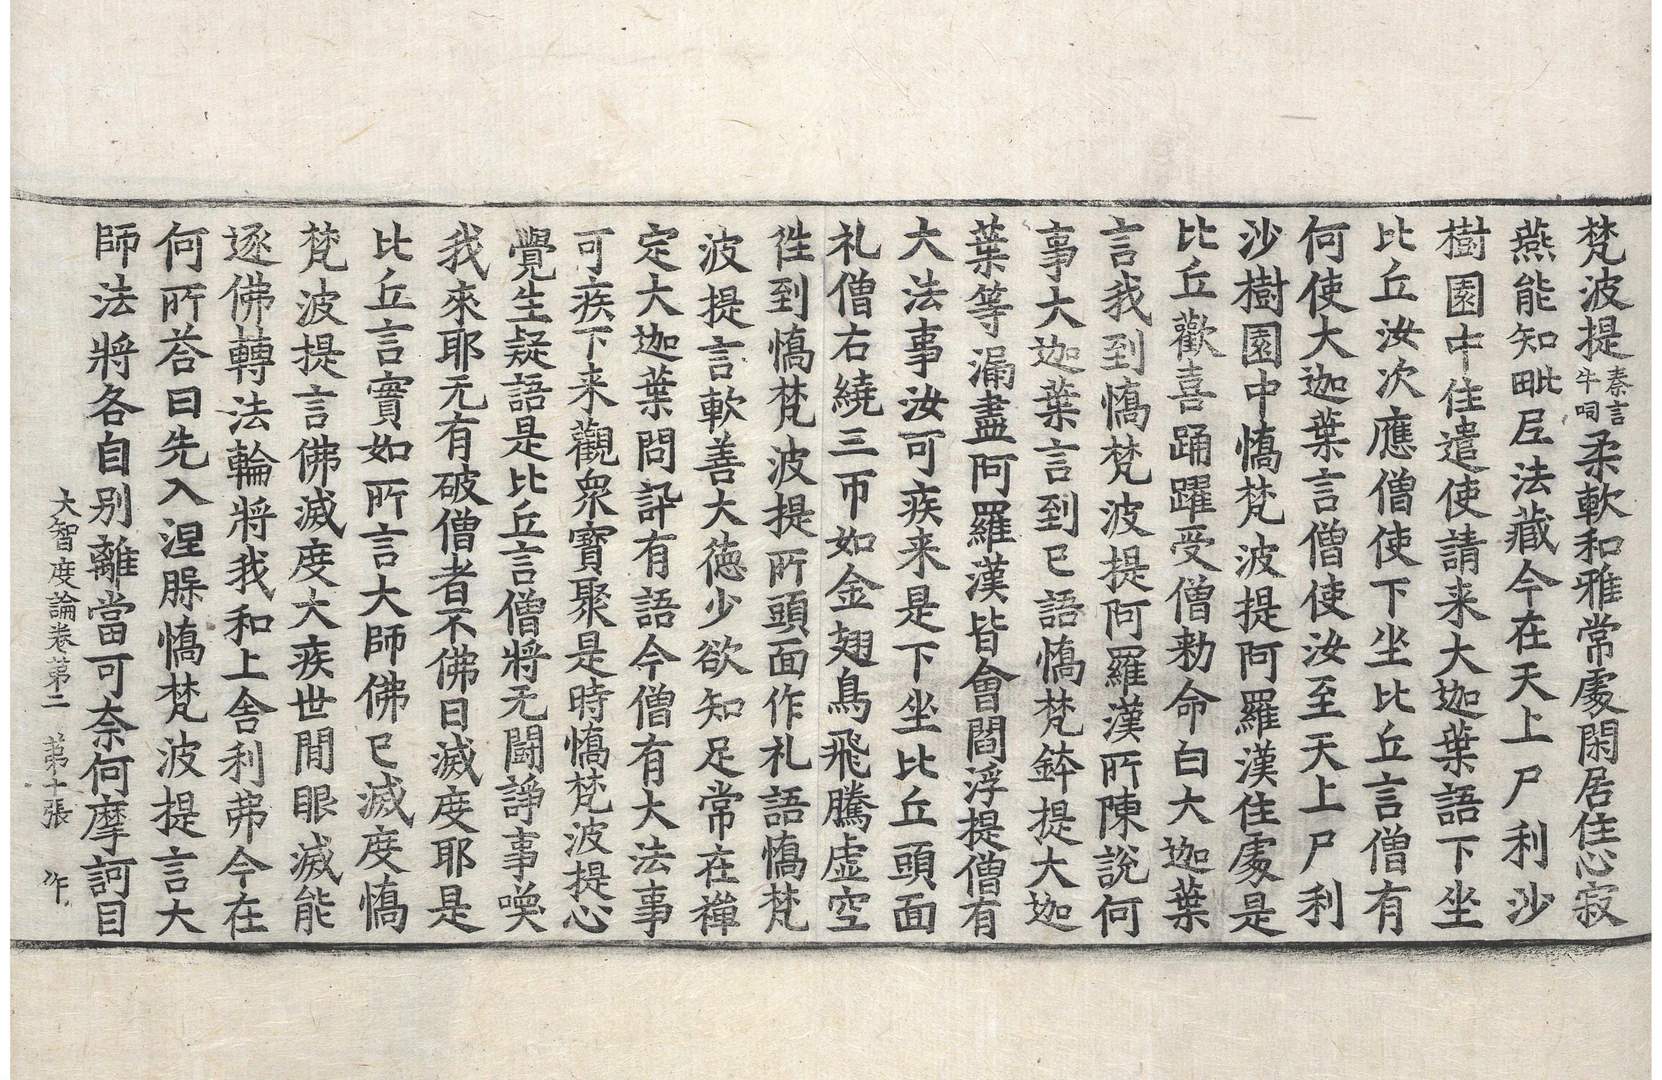 梵波提秦言牛呞柔軟和雅常處閑居住心寂
燕能知毗尼法藏今在天上尸利沙
樹園中住遣使請来大迦葉語下坐
比丘汝次應僧使下坐比丘言僧有
何使大迦葉言僧使汝至天上尸利
沙樹園中憍梵波提阿羅漢住處是
比丘歡喜踊躍受僧勑命白大迦葉
言我到憍梵波提阿羅漢所陳說何
事大迦葉言到已語憍梵鉢提大迦
葉等漏盡阿羅漢皆會閻浮提僧有
大法事汝可疾来是下坐比丘頭面
礼僧右繞三帀如金翅鳥飛騰虚空
徃到憍梵波提所頭面作礼語憍梵
波提言軟善大德少欲知足常在禪
定大迦葉問訊有語今僧有大法事
可疾下来觀衆寶聚是時憍梵波提心
覺生疑語是比丘言僧將无闘諍事喚
我來耶无有破僧者不佛日滅度耶是
比丘言實如所言大師佛已滅度憍
梵波提言佛滅度大疾世間眼滅能
逐佛轉法輪將我和上舎利弗今在
何所荅曰先入涅槃憍梵波提言大
師法將各自别離當可奈何摩訶目
大智度論卷第二 第十張 作